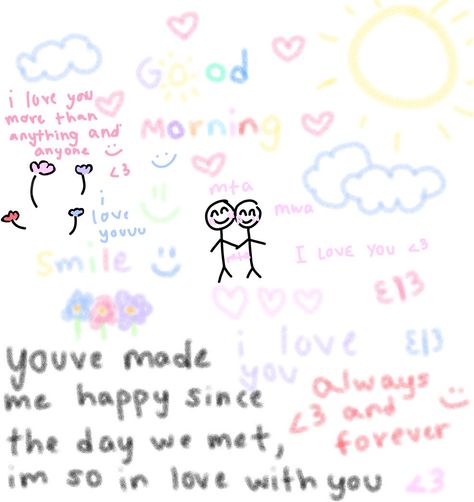 Good
Morning
i love you
more than
anything and
anyone :)
<3
i
love
youuu
:)
mta
mwa
smile :)
I LOVE YOU <3
ε13
i love
you
ε13
always
<3 and :)
forever
youve made
me happy since
the day we met,
im so in love with you <3